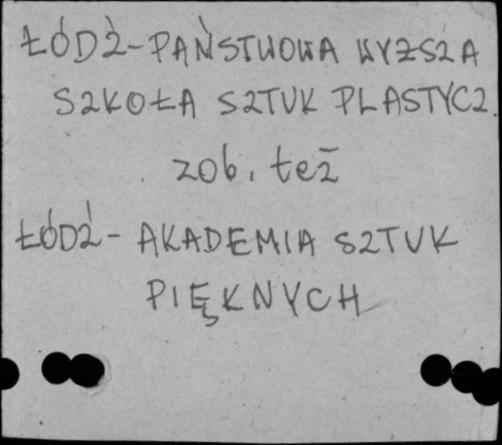 ŁÓDŹ - PAŃSTWOWA WYŻSZA
SZKOŁA SZTUK PLASTYCZ.
zob. też
ŁÓDŹ - AKADEMIA SZTUK
PIĘKNYCH